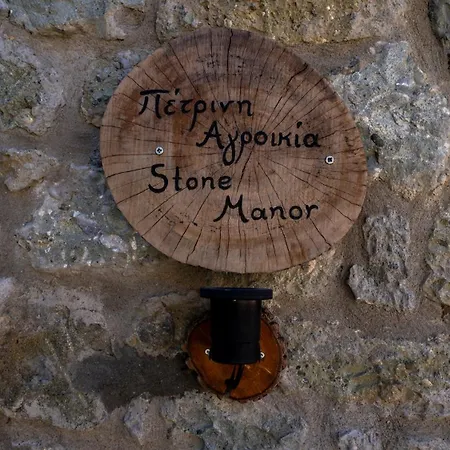 Πέτρινη
Αγροικία
Stone
Manor